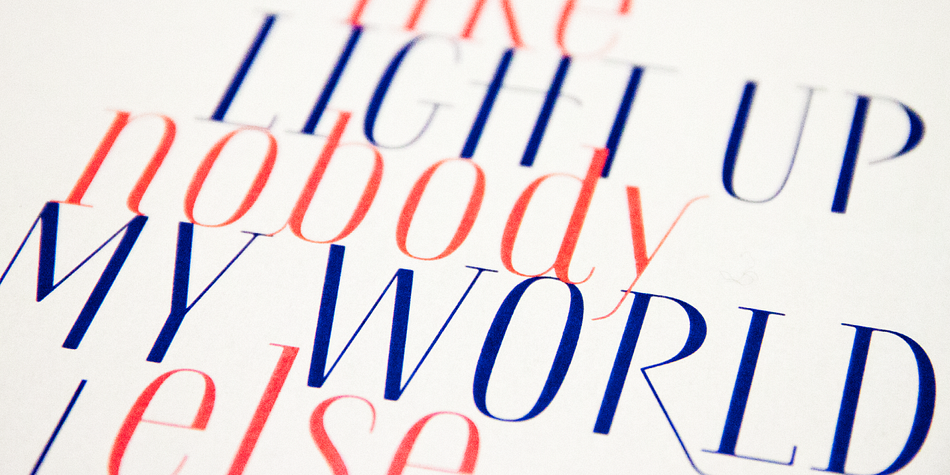 like
LIGHT UP
nobody
MY WORLD
else